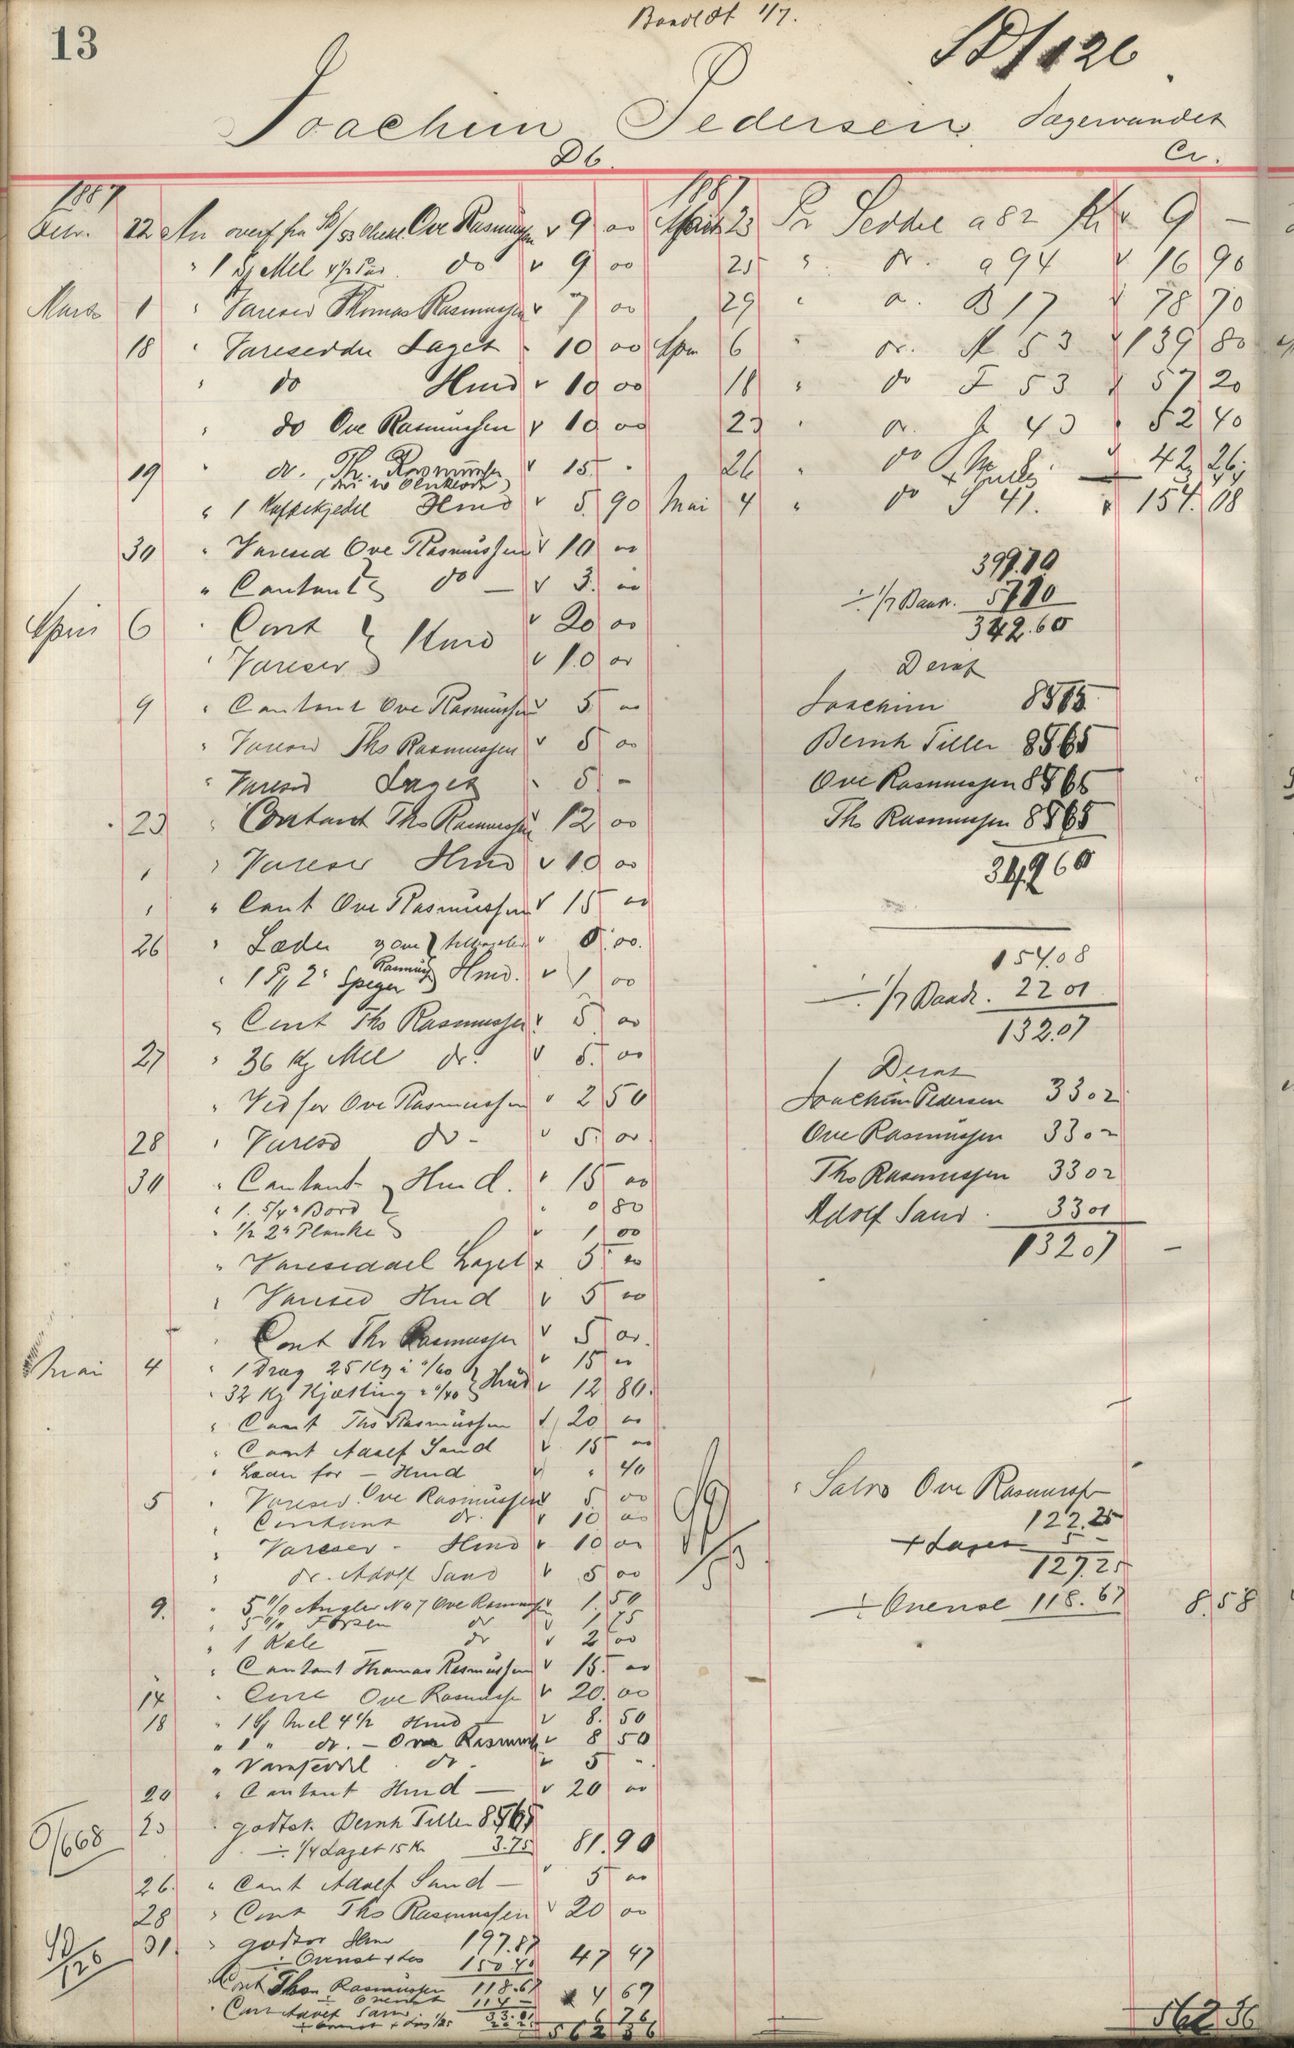 13
SD/126
Joachim Pedersen
Db. Cr.
1887
22 An overf fra 53 Ove Rasmussen 9 00
" 1 Sj Mel 4 1/2 do 9 00
Marts 1 " Varesed Thomas Rasmussen 7 00
18 " Vareseddel Laget 10 00
" do Hmd 10 00
" do Ove Rasmussen 10 00
19 " do. Th. Rasmussen 15 "
" 1 Kaffekjedel Hmd 5 90
30 " Varesed Ove Rasmussen 10 00
" Contant do — 3 00
April 6 " Cont } Hmd 20 00
" Varesed 10 00
9 " Contant Ove Rasmussen 5 00
" Varesed Ths Rasmussen 5 00
" Varesed Laget 5 —
23 " Contant Ths Rasmussen 12 00
" " Varesed Hmd 10 00
" " Cant Ove Rasmussen 15 00
26 " Læder
" 1 2" Speger Hmd. 1 00
" Cont Ths Rasmussen 5 00
27 " 36 Kg Mel do. 5 00
" Ved for Ove Rasmussen 2 50
28 " Varesd do - 5 00
30 " Contant Hmd. 15 00
" 1. 5/4" Bord 0 80
" 1/2 2" Planke 1 00
" Vareseddel Laget 5 00
" Varesed Hmd 5 00
" Cont Ths Rasmussen 5 00
Mai 4 " 1 Drag 25 Kg a "/60 } Hmd 15 00
" 32 Kg Kjætting a "/40 12 80
" Cont Ths Rasmussen 20 00
" Cont Adolf Sand 15 00
" for — Hmd " 40
5 " Varesed. Ove Rasmussen 5 00
" Contant do. 10 00
" Varesed - Hmd 10 00
" do. Adolf Sand 5 00
9. " 5 Angler No 7 Ove Rasmussen 1 50
do 1 75
" 1 Kale do 2 00
" Contant Thomas Rasmussen 15 00
14 " Cont Ove Rasmussen 20 00
18 " 1 Sj Mel 4 1/2 Hmd — 8 50
" 1 " do. — Ove Rasmussen 8 50
" Vareseddel do - 5 -
20 " Contant Hmd — 20 00
O/668
23 " godtsk. Bernh Tiller 85 65
÷ 1/4 Laget 15 Kr 3.75 81.90
26. " Cant Adolf Sand — 5 00
28 " Cont Ths Rasmussen 20 00
SD/126
31. " godtsk Hmd 197.87
÷ Ovenst + Las 150 40 47 47
Cont Thom Rasmussen 118.67
÷ Ovenst 114 — 4 67
Cont Adolf Sand 33.01
6 76
562 36
1887
23 Pr Seddel a 82 Kr 9 —
25 " do. a 94 16 90
29 " do. B 17 78 70
April 6 " do. 53 139 80
18 " do F 53 57 20
23 " do. 43 52 40
26 " do 42 26
Mai 4 " do S 41. 154.08
399.70
÷ 1/7 Baadr. 57 10
342.60
Deraf
Joachim 85 65
Bernh Tiller 85 65
Ove Rasmussen 85 65
Ths Rasmussen 85 65
342 60
154.08
÷ 1/7 Baadr. 22 01
132.07
Deraf
Joachim Pedersen 33 02
Ove Rasmussen 33 02
Ths Rasmussen 33 02
Adolf Sand 33 01
132 07 —
" Saldo Ove Rasmussen
122.25
+ Laget 5 -
127.25
÷ Ovenst 118.67 8.58
562 36